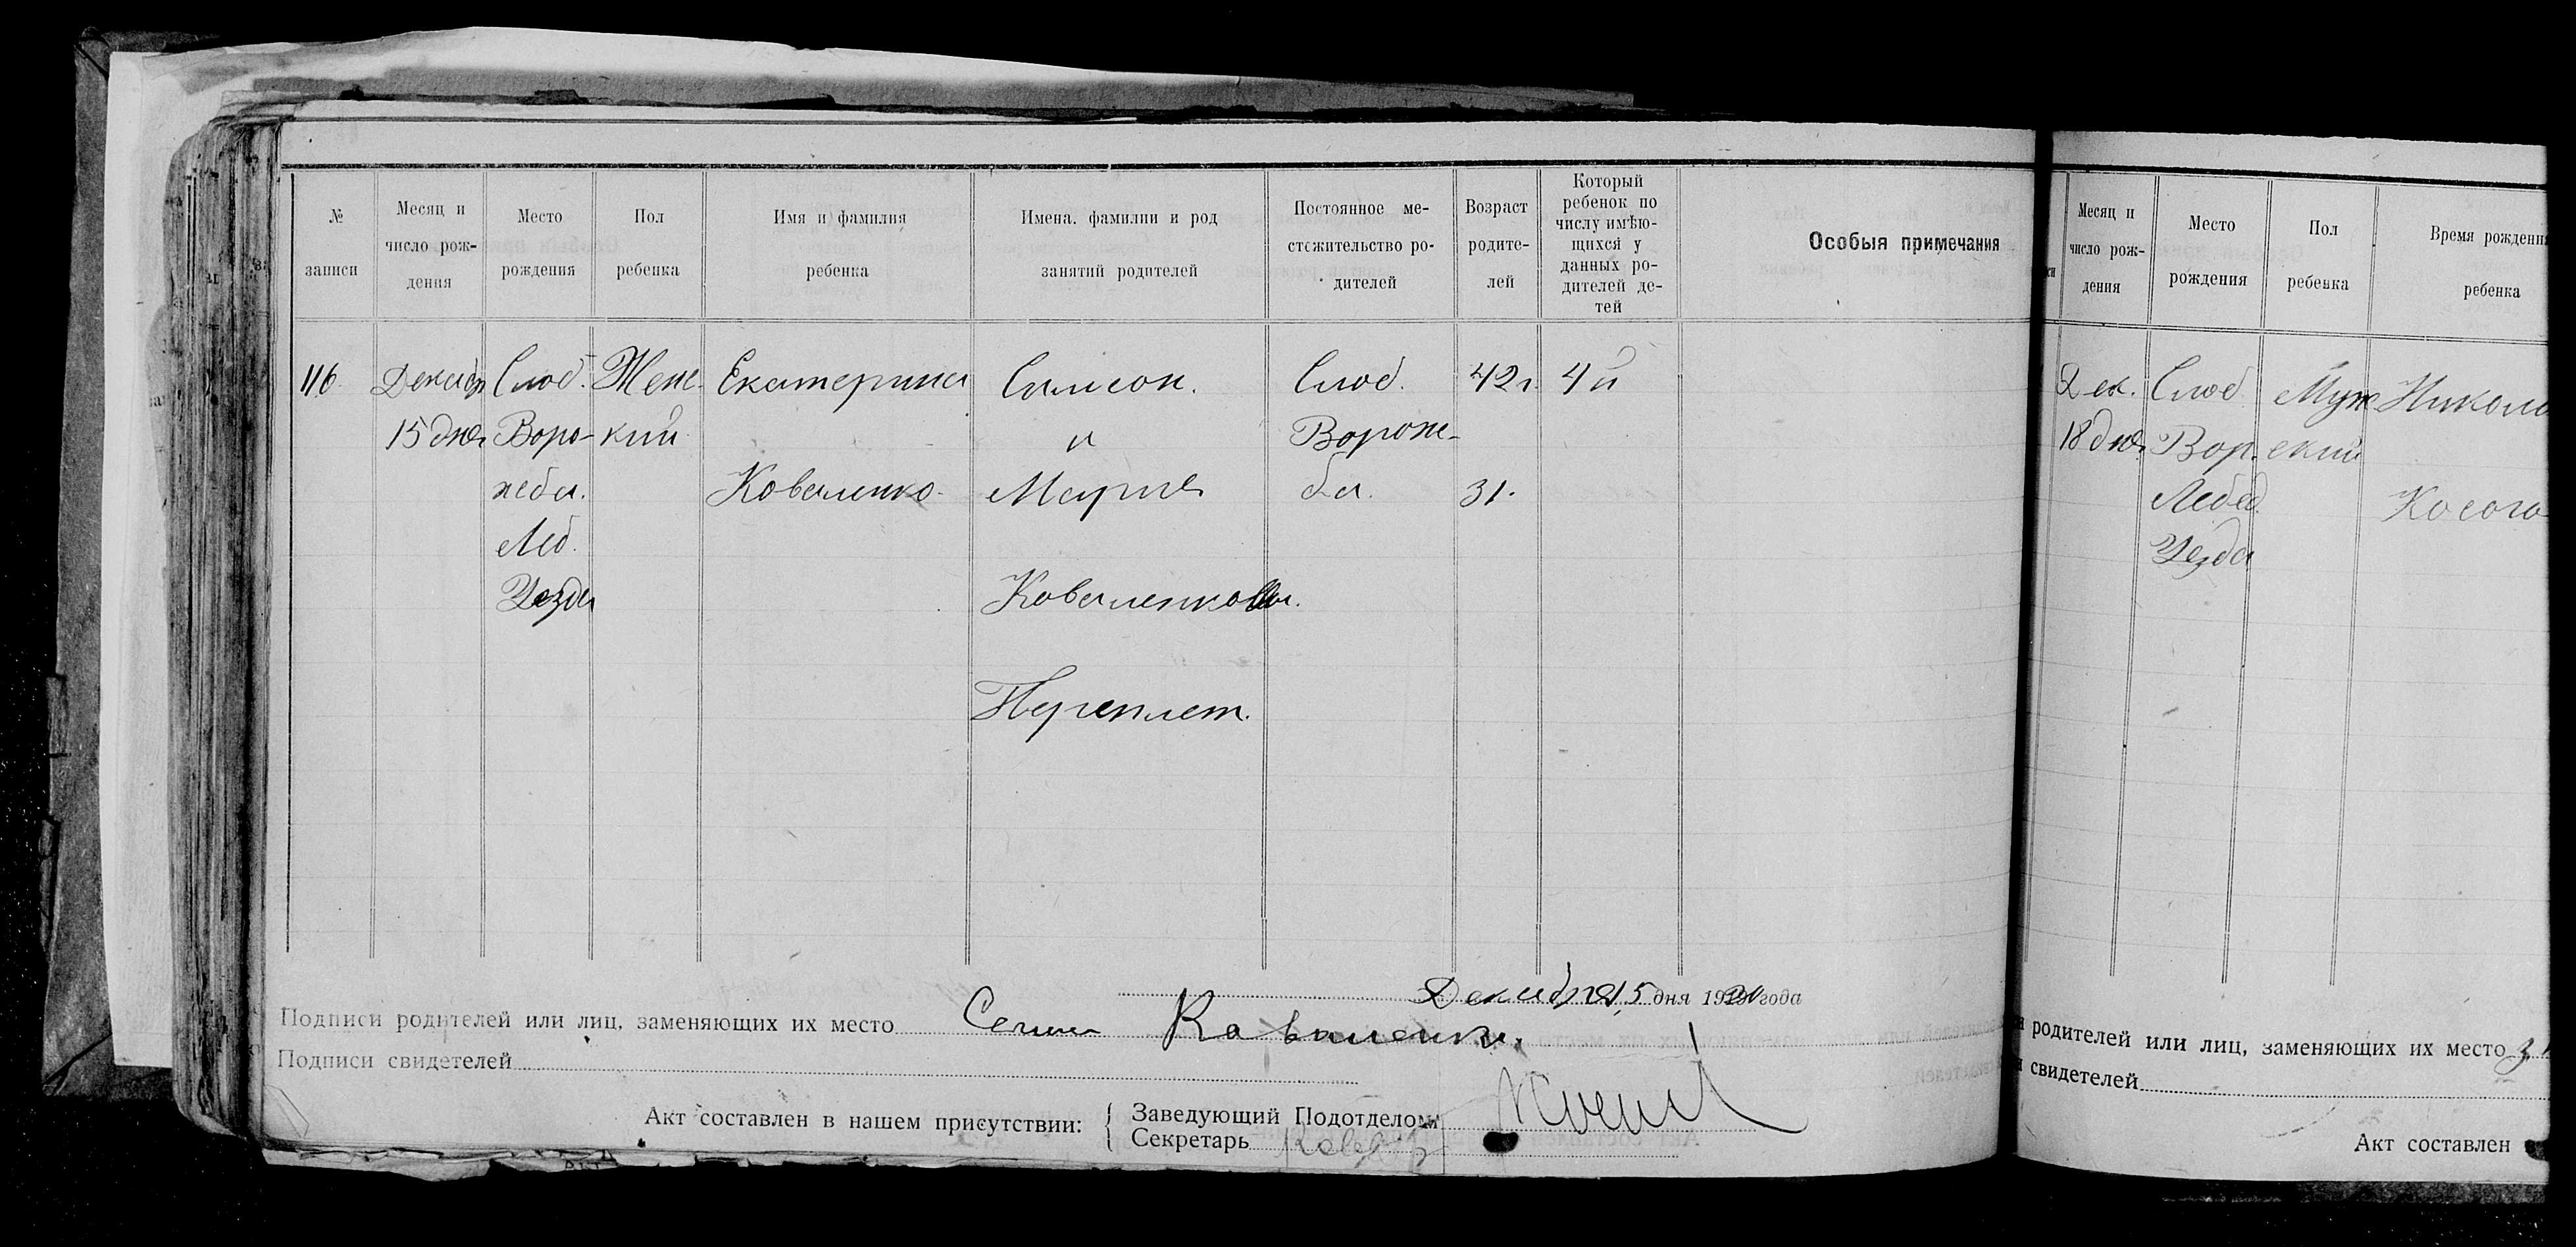 № записи
Месяц и число рож-дения
Место рождения
Пол ребенка
Имя и фамилия ребенка
Имена. фамилии и род занятий родителей
Постоянное ме-стожительство ро-дителей
Возраст родите-лей
Который ребенок по числу имѣю-щихся у данных ро-дителей де-тей
Особыя примечания
116
Декабр
15 дня
Слоб.
Воро-
жба.
Леб.
Уезда
Женс
кий
Екатерина
Коваленко
и
Мария
Коваленков
Переплет.
Слоб.
Ворож-
ба.
42 г.
31.
4й
Декабря 15 дня 19 года
Подписи родителей или лиц, заменяющих их место
Подписи свидетелей
Акт составлен в нашем присутствии:
Заведующий Подотделом
Секретарь
Месяц и число рож-дения
Место рождения
Пол ребенка
Время рождения
ребенка
Дек.
18 дня
Слоб
Вор.
Лебед.
Уезда
Муж
ский
Никола
Косого
родителей или лиц, заменяющих их место
свидетелей
Акт составлен